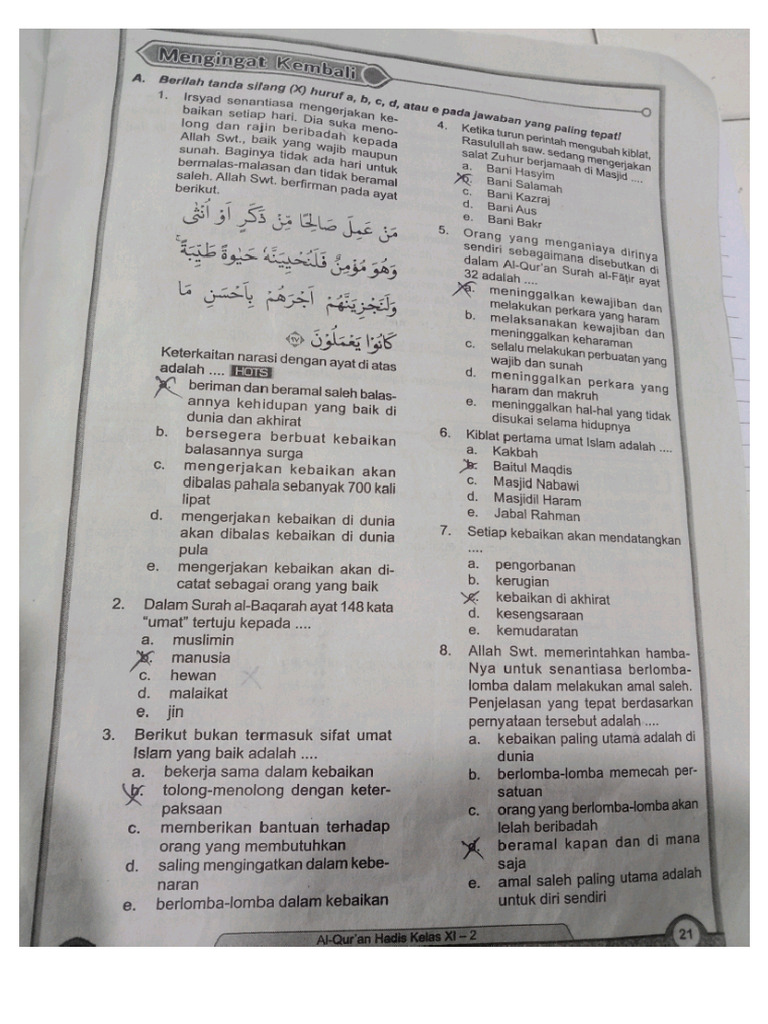 Mengingat Kembali
A. Berilah tanda silang (X) huruf a, b, c, d, atau e pada jawaban yang paling tepat!
1. Irsyad senantiasa mengerjakan ke-
baikan setiap hari. Dia suka meno-
long dan rajin beribadah kepada
Allah Swt., baik yang wajib maupun
sunah. Baginya tidak ada hari untuk
bermalas-malasan dan tidak beramal
saleh. Allah Swt. berfirman pada ayat
berikut.
مَنْ عَمِلَ صَالِحًا مِّنْ ذَكَرٍ اَوْ اُنْثٰى
وَهُوَ مُؤْمِنٌ فَلَنُحْيِيَنَّهٗ حَيٰوةً طَيِّبَةًۚ
وَلَنَجْزِيَنَّهُمْ اَجْرَهُمْ بِاَحْسَنِ مَا
كَانُوْا يَعْمَلُوْنَ ﴿٩٧﴾
Keterkaitan narasi dengan ayat di atas
adalah .... HOTS
a. beriman dan beramal saleh balas-
annya kehidupan yang baik di
dunia dan akhirat
b. bersegera berbuat kebaikan
balasannya surga
c. mengerjakan kebaikan akan
dibalas pahala sebanyak 700 kali
lipat
d. mengerjakan kebaikan di dunia
akan dibalas kebaikan di dunia
pula
e. mengerjakan kebaikan akan di-
catat sebagai orang yang baik
2. Dalam Surah al-Baqarah ayat 148 kata
“umat” tertuju kepada ....
a. muslimin
b. manusia
c. hewan
d. malaikat
e. jin
3. Berikut bukan termasuk sifat umat
Islam yang baik adalah ....
a. bekerja sama dalam kebaikan
b. tolong-menolong dengan keter-
paksaan
c. memberikan bantuan terhadap
orang yang membutuhkan
d. saling mengingatkan dalam kebe-
naran
e. berlomba-lomba dalam kebaikan
4. Ketika turun perintah mengubah kiblat,
Rasulullah saw. sedang mengerjakan
salat Zuhur berjamaah di Masjid ....
a. Bani Hasyim
b. Bani Salamah
c. Bani Kazraj
d. Bani Aus
e. Bani Bakr
5. Orang yang menganiaya dirinya
sendiri sebagaimana disebutkan di
dalam Al-Qur'an Surah al-Fāṭir ayat
32 adalah ....
a. meninggalkan kewajiban dan
melakukan perkara yang haram
b. melaksanakan kewajiban dan
meninggalkan keharaman
c. selalu melakukan perbuatan yang
wajib dan sunah
d. meninggalkan perkara yang
haram dan makruh
e. meninggalkan hal-hal yang tidak
disukai selama hidupnya
6. Kiblat pertama umat Islam adalah ....
a. Kakbah
b. Baitul Maqdis
c. Masjid Nabawi
d. Masjidil Haram
e. Jabal Rahman
7. Setiap kebaikan akan mendatangkan
....
a. pengorbanan
b. kerugian
c. kebaikan di akhirat
d. kesengsaraan
e. kemudaratan
8. Allah Swt. memerintahkan hamba-
Nya untuk senantiasa berlomba-
lomba dalam melakukan amal saleh.
Penjelasan yang tepat berdasarkan
pernyataan tersebut adalah ....
a. kebaikan paling utama adalah di
dunia
b. berlomba-lomba memecah per-
satuan
c. orang yang berlomba-lomba akan
lelah beribadah
d. beramal kapan dan di mana
saja
e. amal saleh paling utama adalah
untuk diri sendiri
Al-Qur'an Hadis Kelas XI – 2
21